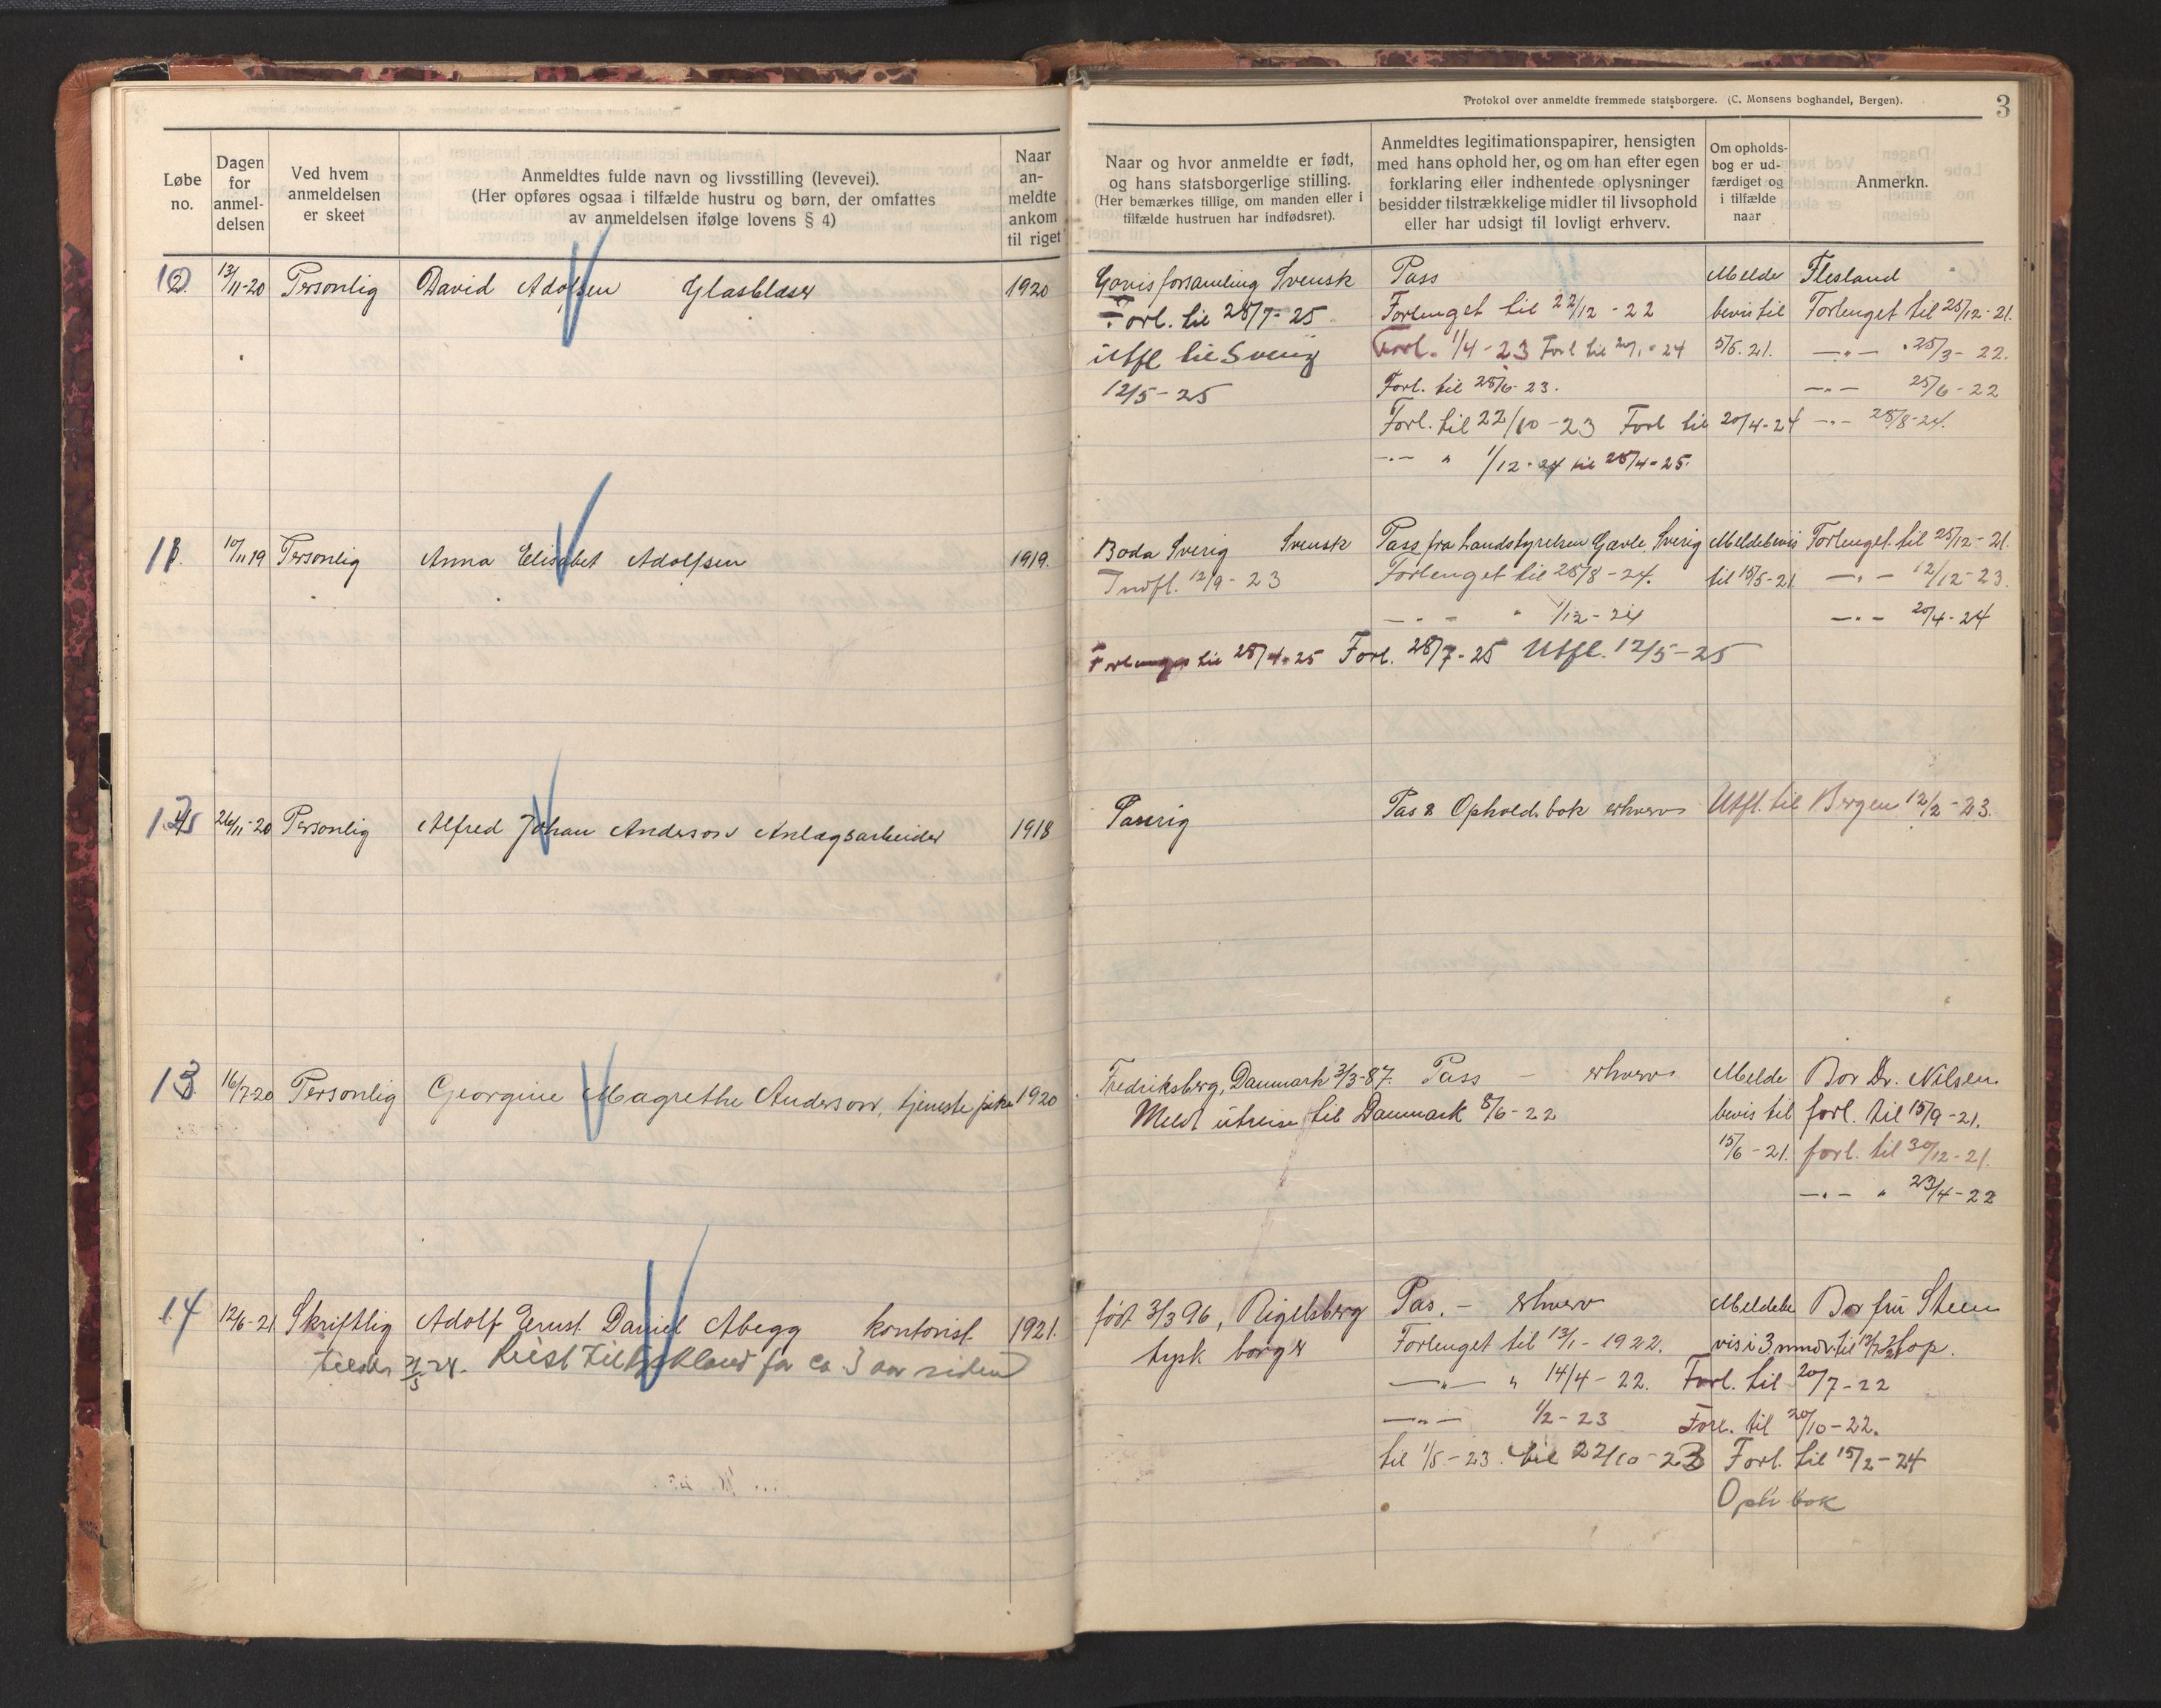 Protokol over anmeldte fremmede statsborgere. (C. Monsens boghandel, Bergen).
3
Løbe no.
Dagen for anmel- delsen
Ved hvem anmeldelsen er skeet
Anmeldtes fulde navn og livsstilling (levevei).
(Her opføres ogsaa i tilfælde hustru og børn, der omfattes
av anmeldelsen ifølge lovens § 4)
Naar an- meldte ankom til riget
Naar og hvor anmeldte er født,
og hans statsborgerlige stilling.
(Her bemærkes tillige, om manden eller i
tilfælde hustruen har indfødsret).
Anmeldtes legitimationspapirer, hensigten
med hans ophold her, og om han efter egen
forklaring eller indhentede oplysninger
besidder tilstrækkelige midler til livsophold
eller har udsigt til lovligt erhverv.
Om opholds-
bog er ud-
færdiget og
i tilfælde
naar
Anmerkn.
10 13/11-20 Personlig David Adolfsen Glasblaser 1920 forsamling Svensk Pass Melde Flesland
Forl. til 25/7-25 Forlenget til 22/12-22 bevis til Forlenget til 25/12-21.
utfl til Sverig Forl. 1/4-23 Forl til 20/1-24 5/6.21. —"— 25/3-22.
12/5-25 Forl. til 25/6-23. —"— 25/6-22
Forl. til 22/10-23 Forl til 20/4-24 —"— 25/8-24.
—"— " 1/12-24 til 25/4-25.
11 10/11 19 Personlig Anna Elisabet Adolfsen 1919. Boda Sverig Svensk Pass fra Landstyrelsen Gavle, Sverig Meldebevis Forlenget til 25/12-21.
Indfl. 12/9-23 Forlenget til 25/8-24. til 15/5-21. —"— 12/12-23.
—"— " 1/12-24 —"— 20/4-24
Forlenges til 25/4-25 Forl. 25/7-25 Utfl. 12/5-25
12 26/11-20 Personlig Alfred Johan Anderson Anlægsarbeider 1918 Pas & Opholdsbok erhverv Utfl. til Bergen 12/2-23.
13 16/7-20 Personlig Georgine Magrethe Anderson, tjenestepike 1920 Fredriksberg, Danmark 3/3-87. Pass — erhverv Melde Bor Dr. Nilsen
Meldt utreise til Danmark 8/6-22 bevis til forl. til 15/9-21.
15/6-21. forl. til 30/12-21.
—"— " 23/4-22
14 12/6-21 Skriftlig Adolf Ernst Daniel Abegg kontorist 1921. født 3/3 96, Rigelsberg Pas. — erhverv Meldebe Bor fru Steen
Reist til Tyskland for ca 3 aar siden tysk borger Forlenget til 13/1-1922. vis i 3 mndr. til Hop.
—"— " 14/4-22. Forl. til 20/7-22
—"— 1/2-23 Forl. til 20/10-22.
til 1/5-23. til 22/10-23 Forl. til 15/2-24
Oph bok